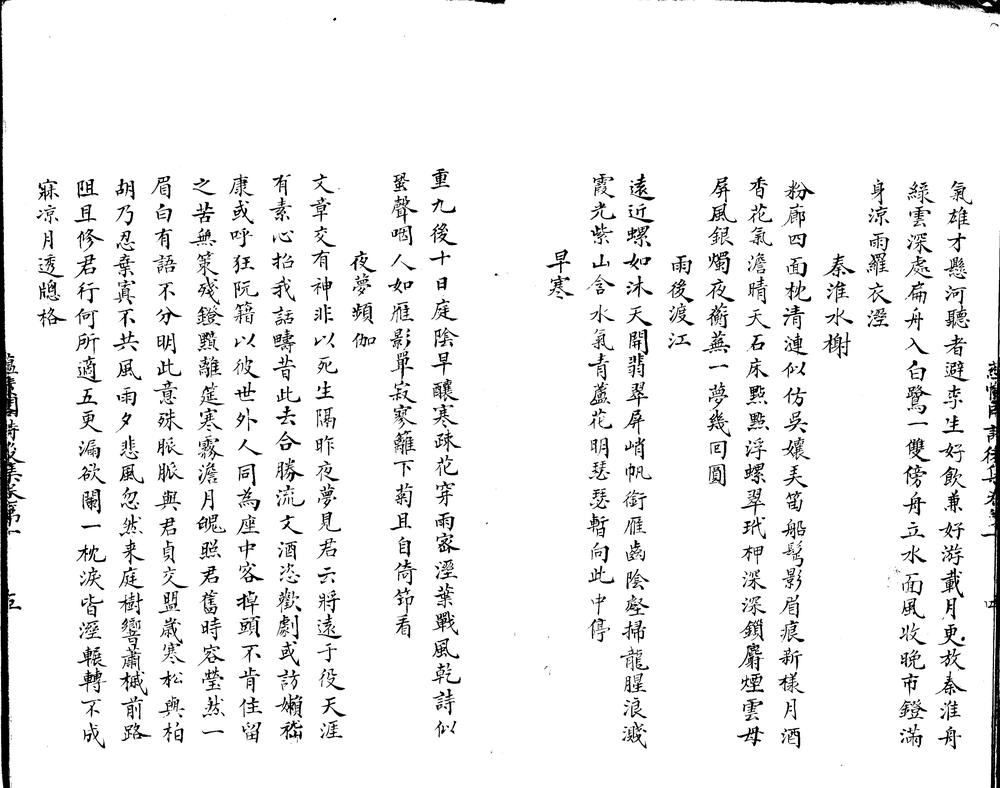 氣雄才懸河聽者避李生好飲兼好游載月更放秦淮舟
綠雲深處扁舟入白鷺一雙傍舟立水面風收晚市鐙滿
身涼雨羅衣溼
秦淮水榭
粉廊四面枕清漣似仿吳孃美笛船鬢影眉痕新樣月酒
香花氣澹晴天石床點點浮螺翠玳柙深深鎖麝煙雲母
屏風銀燭夜蘅蕪一夢幾回圓
雨後渡江
遠近螺如沐天開翡翠屏峭帆銜雁齒陰壑掃龍腥浪濺
霞光紫山含水氣青蘆花明瑟瑟暫向此中停
早寒
重九後十日庭陰早釀寒疎花穿雨密溼葉戰風乾詩似
蛩聲咽人如雁影單寂寥籬下菊且自倚笻看
夜夢頻伽
文章交有神非以死生隔昨夜夢見君云將遠于役天涯
有素心招我話疇昔此去合勝流文酒恣歡劇或訪嬾嵇
康或呼狂阮籍以彼世外人同為座中客掉頭不肯住留
之苦無策殘鐙黯離筵寒霧澹月魄照君舊時容瑩然一
眉白有語不分明此意殊脈脈與君貞交盟歲寒松與柏
胡乃忍棄寘不共風雨夕悲風忽然來庭樹響蕭槭前路
阻且修君行何所適五更漏欲闌一枕淚皆溼輾轉不成
寐凉月透牕格